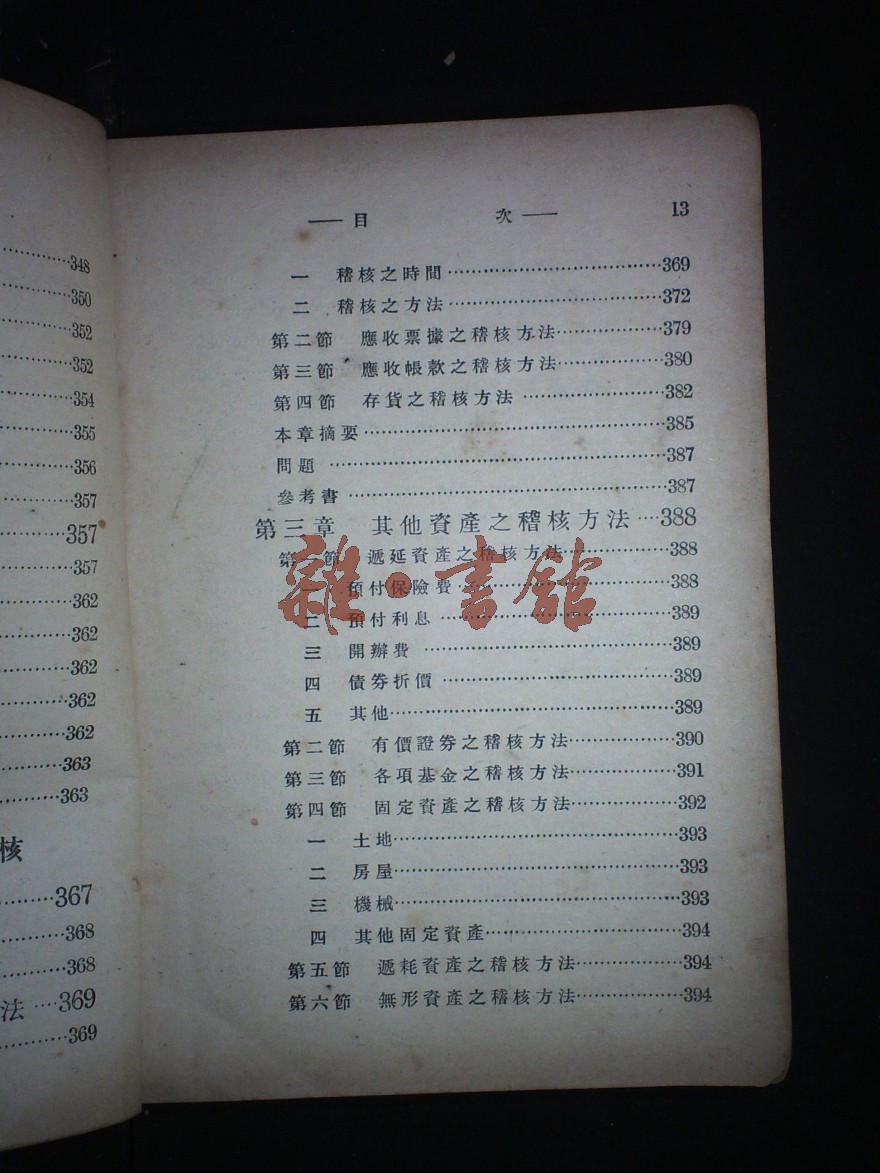 348
350
352
352
354
355
356
357
357
357
362
362
362
362
362
363
363
核
367
368
368
法…369
369
——目 次—— 13
一 稽核之時間…369
二 稽核之方法…372
第二節 應收票據之稽核方法…379
第三節 應收帳款之稽核方法…380
第四節 存貨之稽核方法…382
本章摘要…385
問題…387
參考書…387
第三章 其他資產之稽核方法…388
第一節 遞延資產之稽核方法…388
一 預付保險費…388
二 預付利息…389
三 開辦費…389
四 債券折價…389
五 其他…389
第二節 有價證券之稽核方法…390
第三節 各項基金之稽核方法…391
第四節 固定資產之稽核方法…392
一 土地…393
二 房屋…393
三 機械…393
四 其他固定資產…394
第五節 遞耗資產之稽核方法…394
第六節 無形資產之稽核方法…394
雜·書館